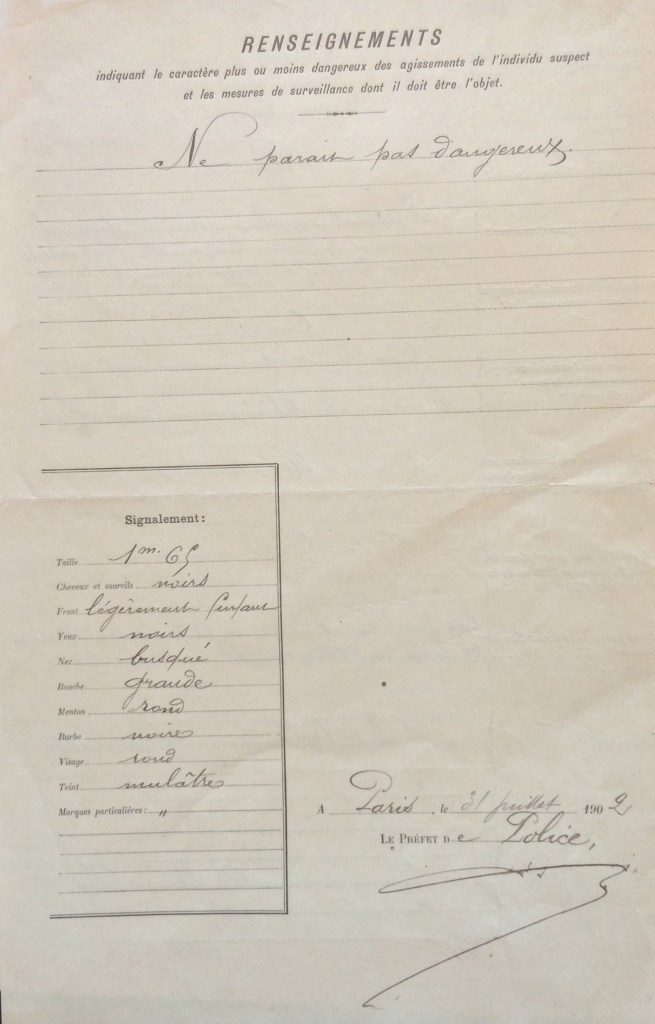 RENSEIGNEMENTS
indiquant le caractère plus ou moins dangereux des agissements de l'individu suspect
et les mesures de surveillance dont il doit être l'objet.
Ne parait pas dangereux.
Signalement :
Taille 1m. 65
Cheveux et sourcils noirs
Front légèrement fuyant
Yeux noirs
Nez busqué
Bouche grande
Menton rond
Barbe noire
Visage rond
Teint mulâtre
Marques particulières : "
A Paris, le 31 juillet 1902
LE PRÉFET DE Police,